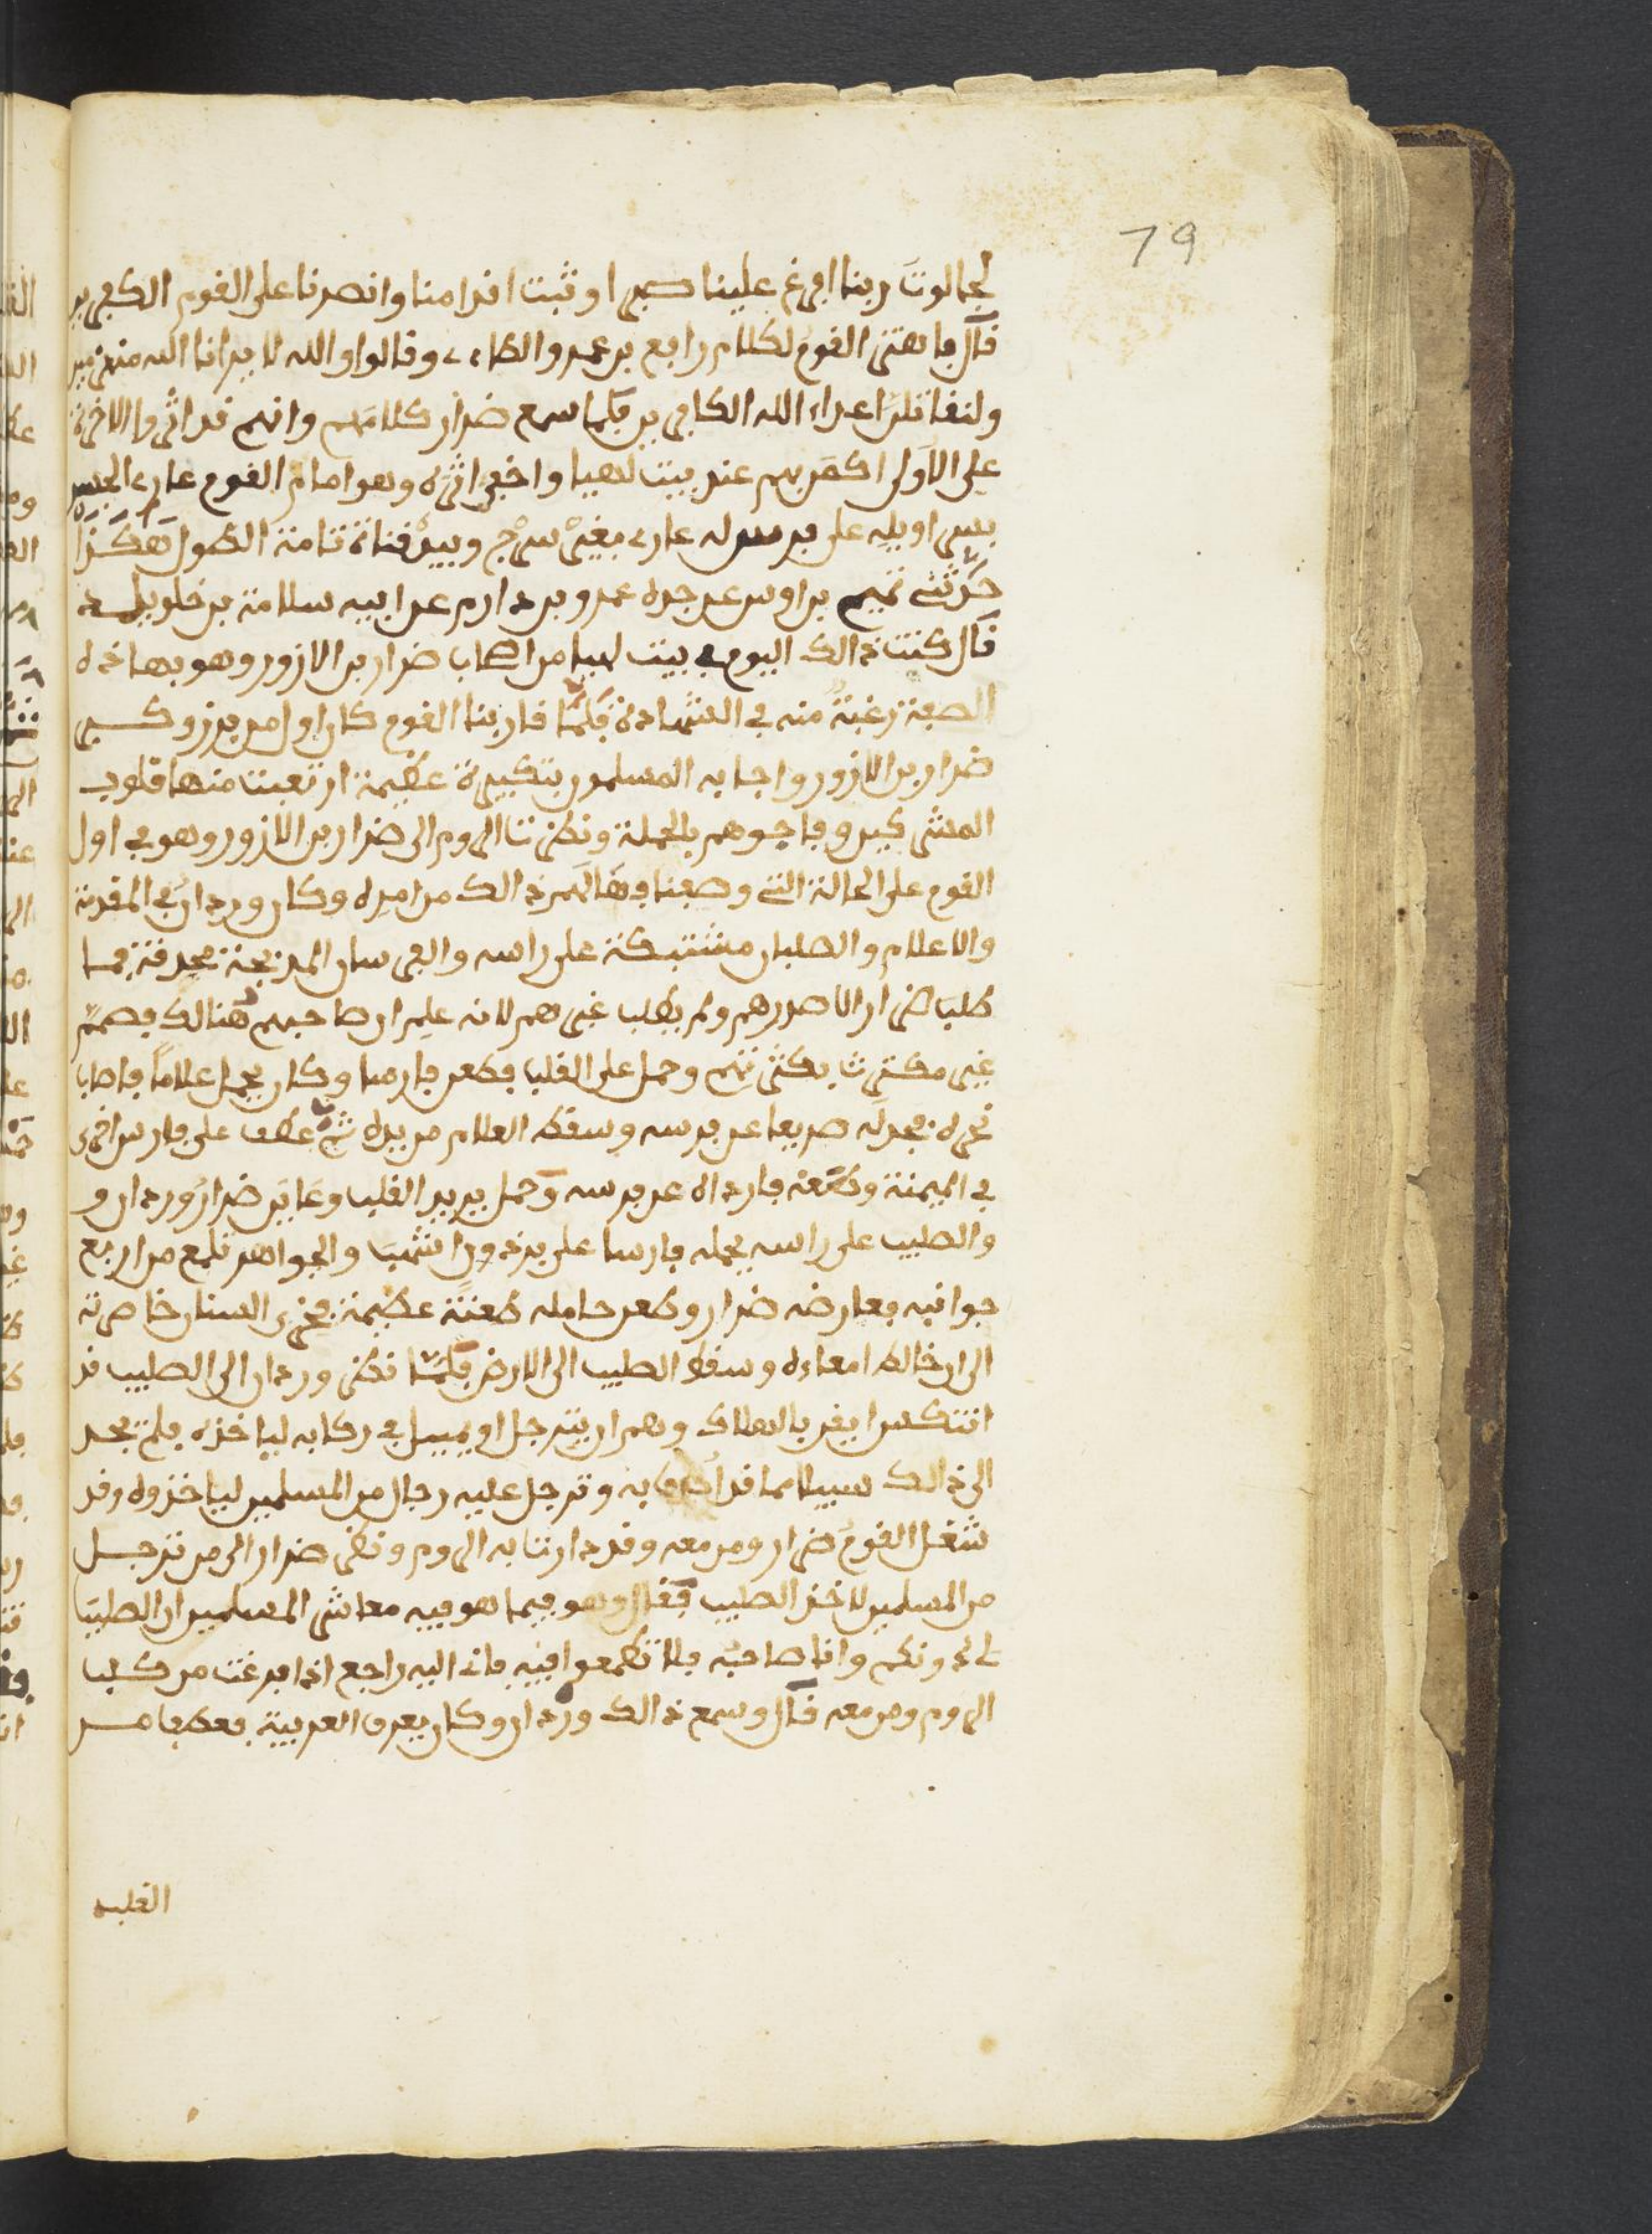 79
لجالوت ربنا افرغ علينا صبرا وثبت اقدامنا وانصرنا على القوم الكفرين
قال فاهتز القوم لكلام رافع بن عمرو الطاءى وقالوا والله لا يرانا الله منهزمين
ولنقاتلن اعداء الله الكافرين فلما سمع ضرار كلامهم وانهم قد اثروا الاخرة
على الاولى اكمن بهم عند بيت لهيا واخفى اثره وهو امام القوم عارى الجسد
بسراويله على فرس له عارى بغير سرج وبيده قناة تامة الطول هكذا
حدثنى تميم بن اوس عن جده عمرو بن دارم عن ابيه سلامة بن خويلد
قال كنت ذالك اليوم فى بيت لهيا من اصحاب ضرار بن الازور وهو بهاذه
الصفة رغبة منه فى الشهادة فلما قاربنا القوم كان اول من برز وكبر
ضرار بن الازور واجابه المسلمون بتكبيرة عظيمة ارتعبت منها قلوب
المشركين وفاجوهم بالحملة ونظرت الروم الى ضرار بن الازور وهو فى اول
القوم على الحالة التى وصفنا فهالهم ذالك من امره وكان وردان فى المقدمة
والاعلام والصلبان مشتبكة على راسه والفرسان المدبجة محدقة فما
طلب ضرار الا صدرهم ولم يطلب غيرهم لانه علم ان صاحبهم هنالك فصمم
غير مكترث بكثرتهم وحمل على القلب فطعن فارسا وكان يحمل علاما فاصاب
نحره فجدله صريعا عن فرسه وسقط العلام من يده ثم عطف على فارس اخر
فى الميمنة وطعنه فارداه عن فرسه وحمل يريد القلب وعاين ضرار وردان و
والصليب على راسه يحمله فارسا على برذون اشهب والجواهر تلمع من اربع
جوانبه فعارضه ضرار وطعن حامله طعنة عظيمة فخرج السنان خاصرته
الى ان خالط امعاءه وسقط الصليب الى الارض فلما نظر وردان الى الصليب قد
انتكس ايقن بالهلاك وهم ان يترجل او يميل فى ركابه لياخذه فلم يجد
الى ذالك سبيلا مما قد احدق به وترجل عليه رجال من المسلمين لياخذوه وقد
شغل القوم ضرار ومن معه وقد دارت به الروم ونظر ضرار الى من ترجل
من المسلمين لاخذ الصليب فقال وهو فيما هو فيه معاشر المسلمين ان الصليب
لى دونكم وانا صاحبه فلا تطمعوا فيه فانى اليه راجع اذا فرغت من كلب
الروم ومن معه قال وسمع ذالك وردان وكان يعرف العربية فعطف من
القلب